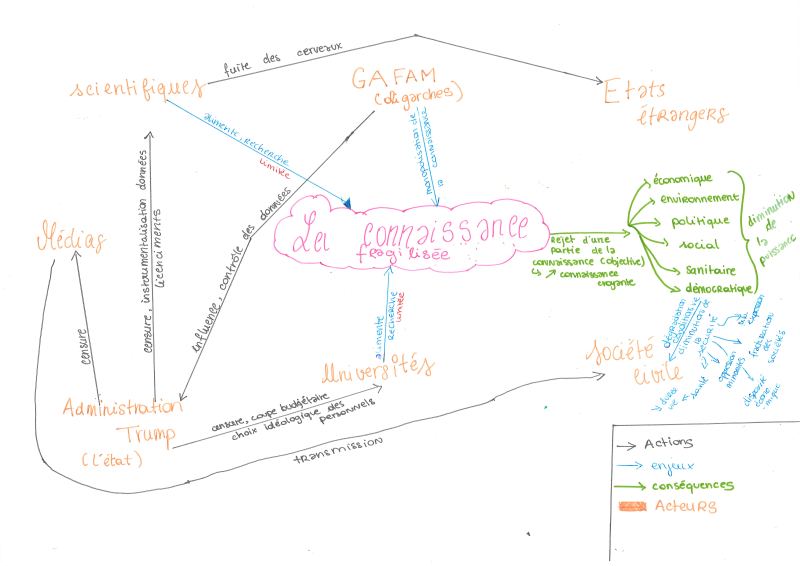 fuite des cerveaux
scientifiques
GAFAM
(oligarches)
Etats
étrangers
alimente, recherche
limitée
monopolisation de
la connaissance
Médias
censure, instrumentalisation données
licenciments
influence, contrôle des données
La connaissance
fragilisée
rejet d'une
partie de la
connaissance (objective)
↳ ↗ connaissance
croyante
économique
environnement
politique
social
sanitaire
démocratique
diminution
de
la
puissance
censure
alimente
recherche
limitée
Universités
société
civile
dégradation
conditions de vie
diminution de
la
sécurité
expression
fracturation
des
sociétés
oppression
minorités
santé
disparité
écono
mique
Administration
Trump
(l'état)
censure, coupe budgétaire
choix idéologique des
personnels
transmission
Actions
enjeux
conséquences
Acteurs